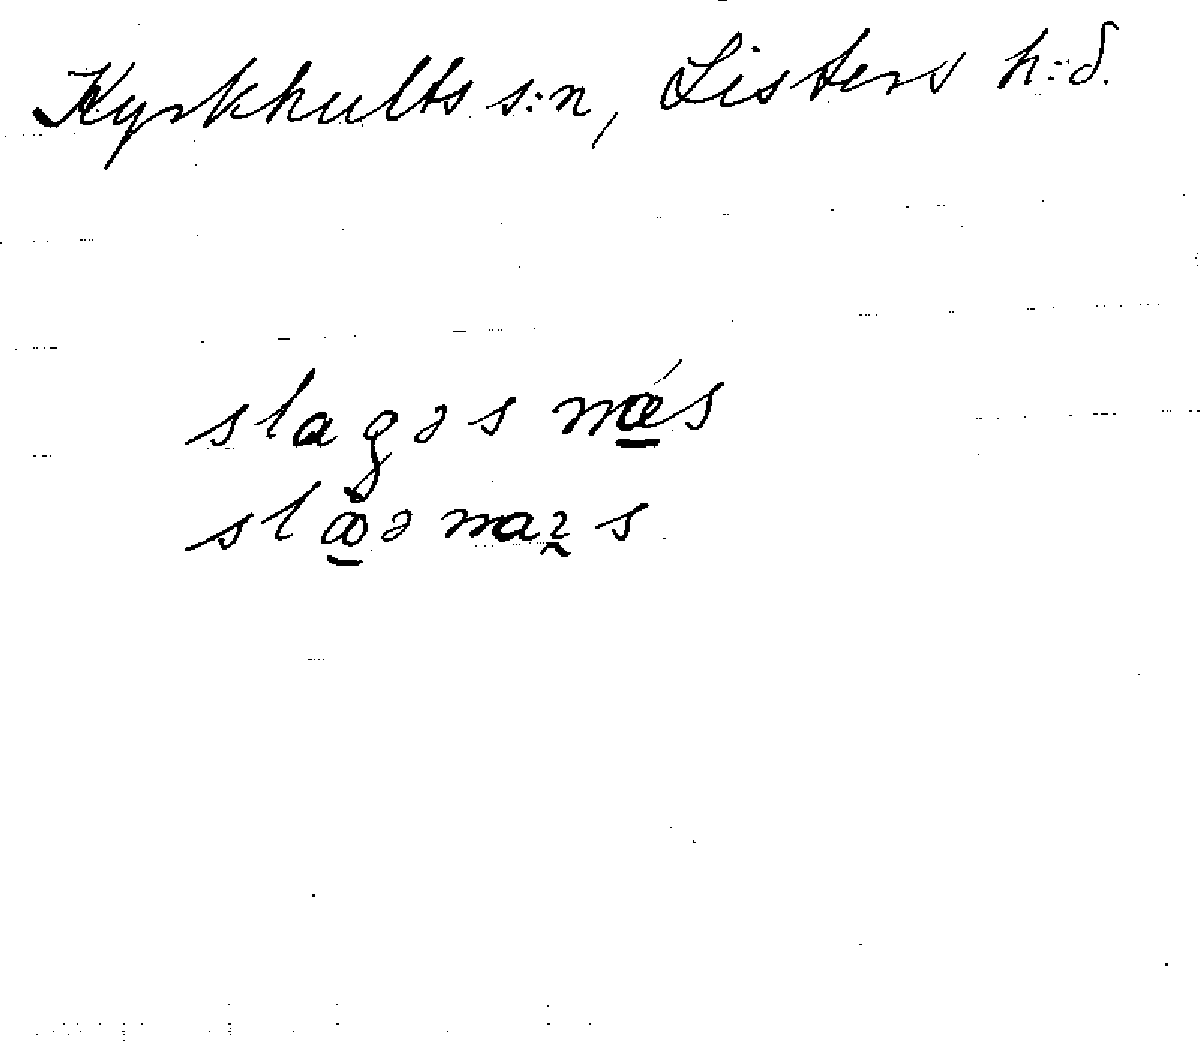 Kyrkhults s:n, Listers h:d.
slagəs más
slåə mazs